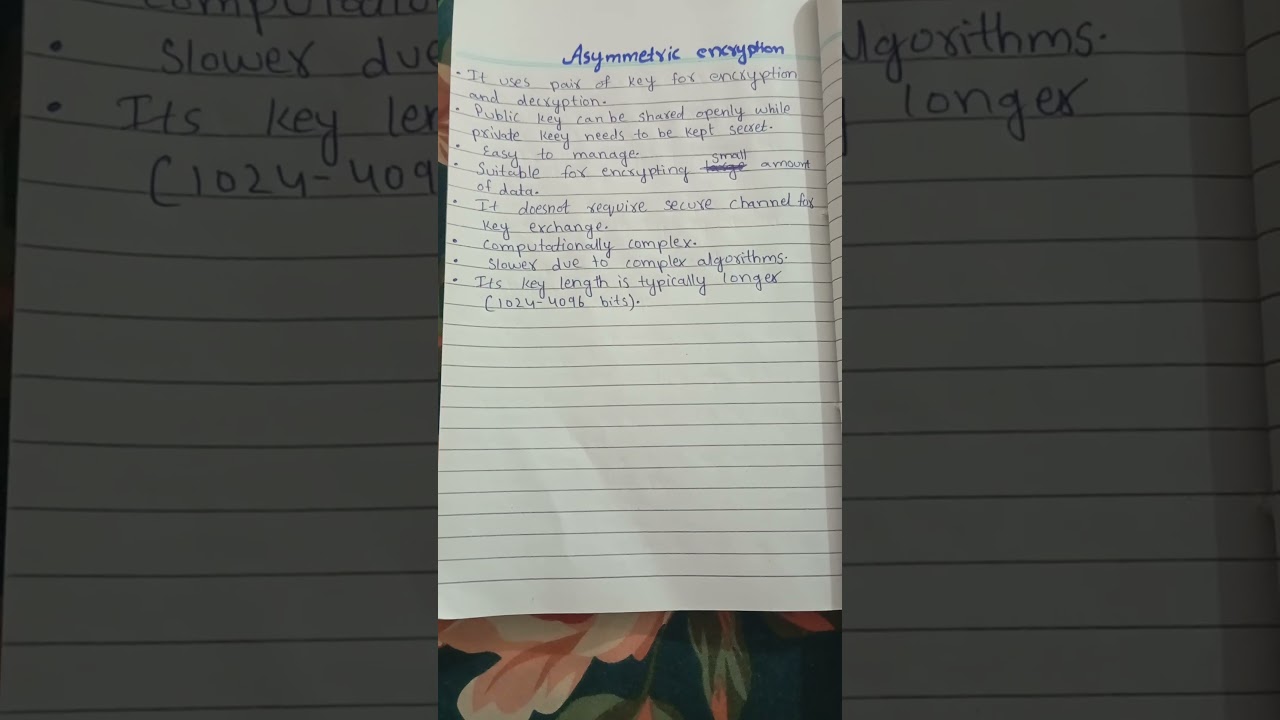 Asymmetric encryption
• It uses pair of key for encryption
and decryption.
• Public key can be shared openly while
private keey needs to be kept secret.
• Easy to manage.
• Suitable for encrypting large small amount
of data.
• It doesnot require secure channel for
key exchange.
• Computationally complex.
• Slower due to complex algorithms.
• Its key length is typically longer
(1024-4096 bits).